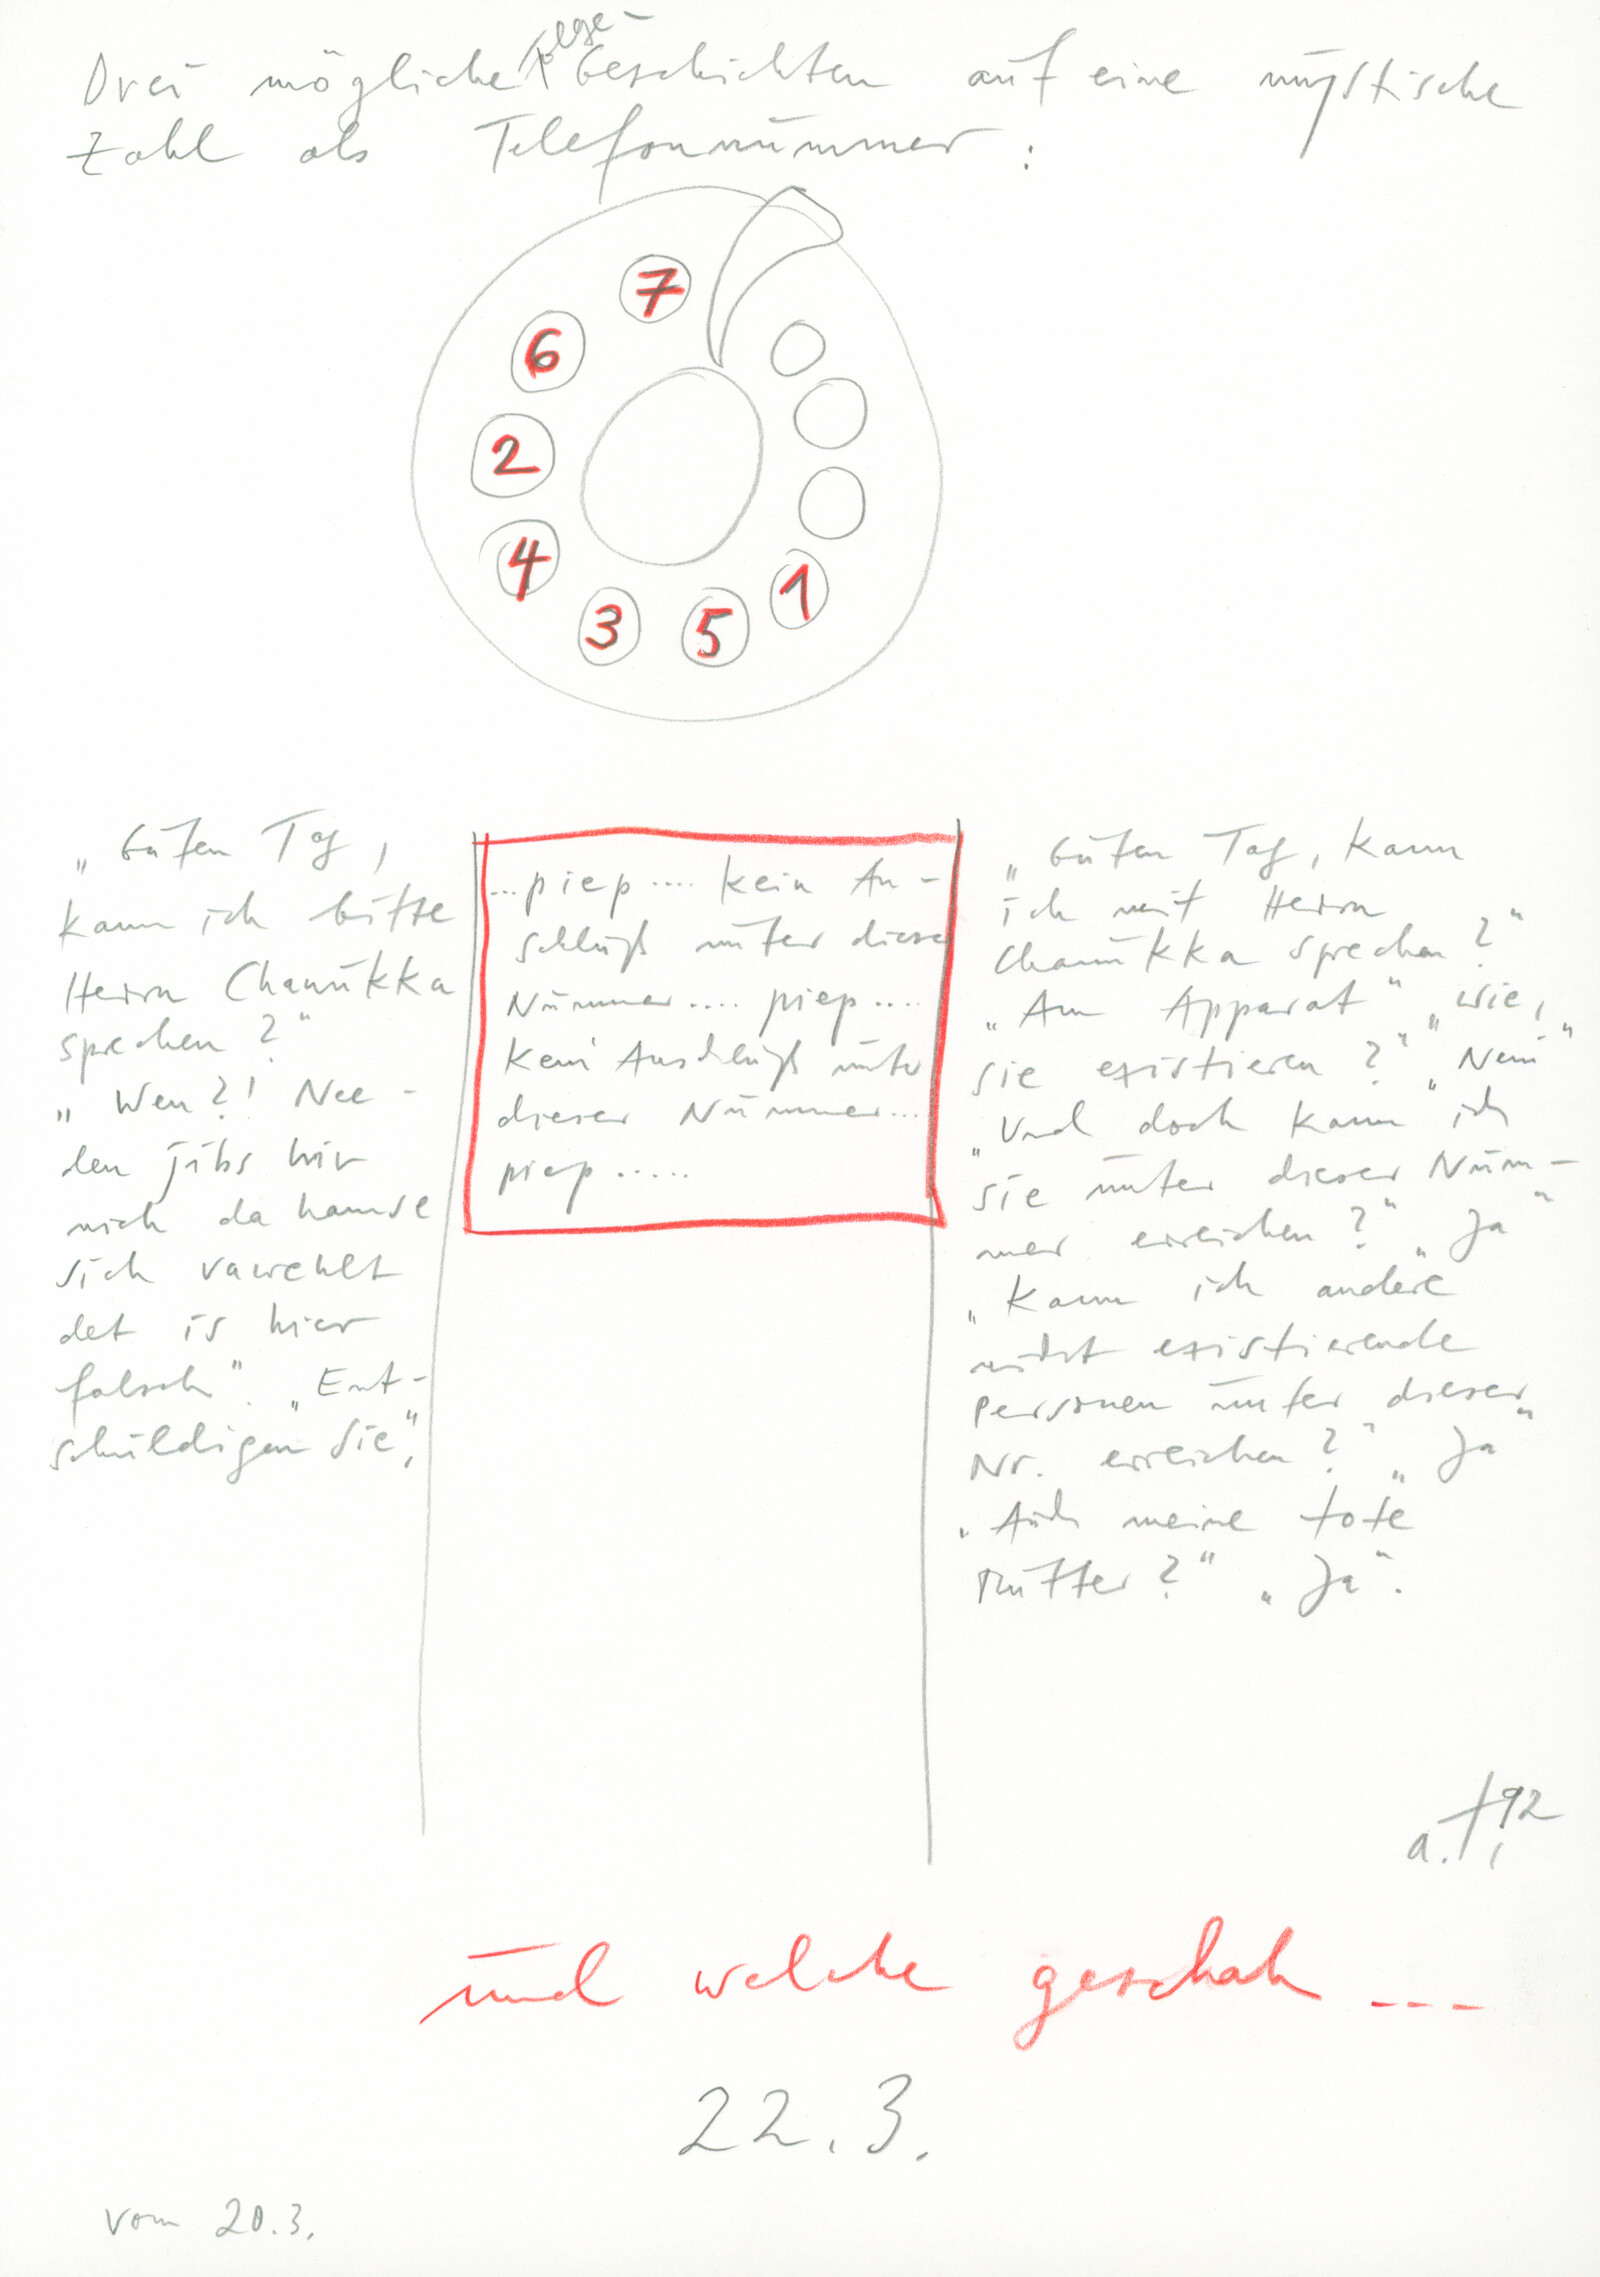 Drei mögliche Folge-Geschichten auf eine mystische
Zahl als Telefonnummer:
7
6
2
4
3
5
1
„Guten Tag,
kann ich bitte
Herrn Chanukka
sprechen?"
„Wen?! Nee-
den jibs hir
nich da hamse
sich vawehlt
det is hier
falsch". „Ent-
schuldigen Sie",
...piep.... kein An-
schluß unter dieser
Nummer.... piep....
kein Anschluß unter
dieser Nummer...
piep.....
„Guten Tag, kann
ich mit Herrn
Chanukka sprechen?"
„Am Apparat" „Wie,
sie existieren?" „Nein"
„Und doch kann ich
sie unter dieser Num-
mer erreichen?" „Ja"
„Kann ich andere
nicht existierende
Personen unter dieser
Nr. erreichen?" „Ja"
„Auch meine tote
Mutter?" „Ja".
a.t. 92
und welche geschah ---
22.3.
vom 20.3.